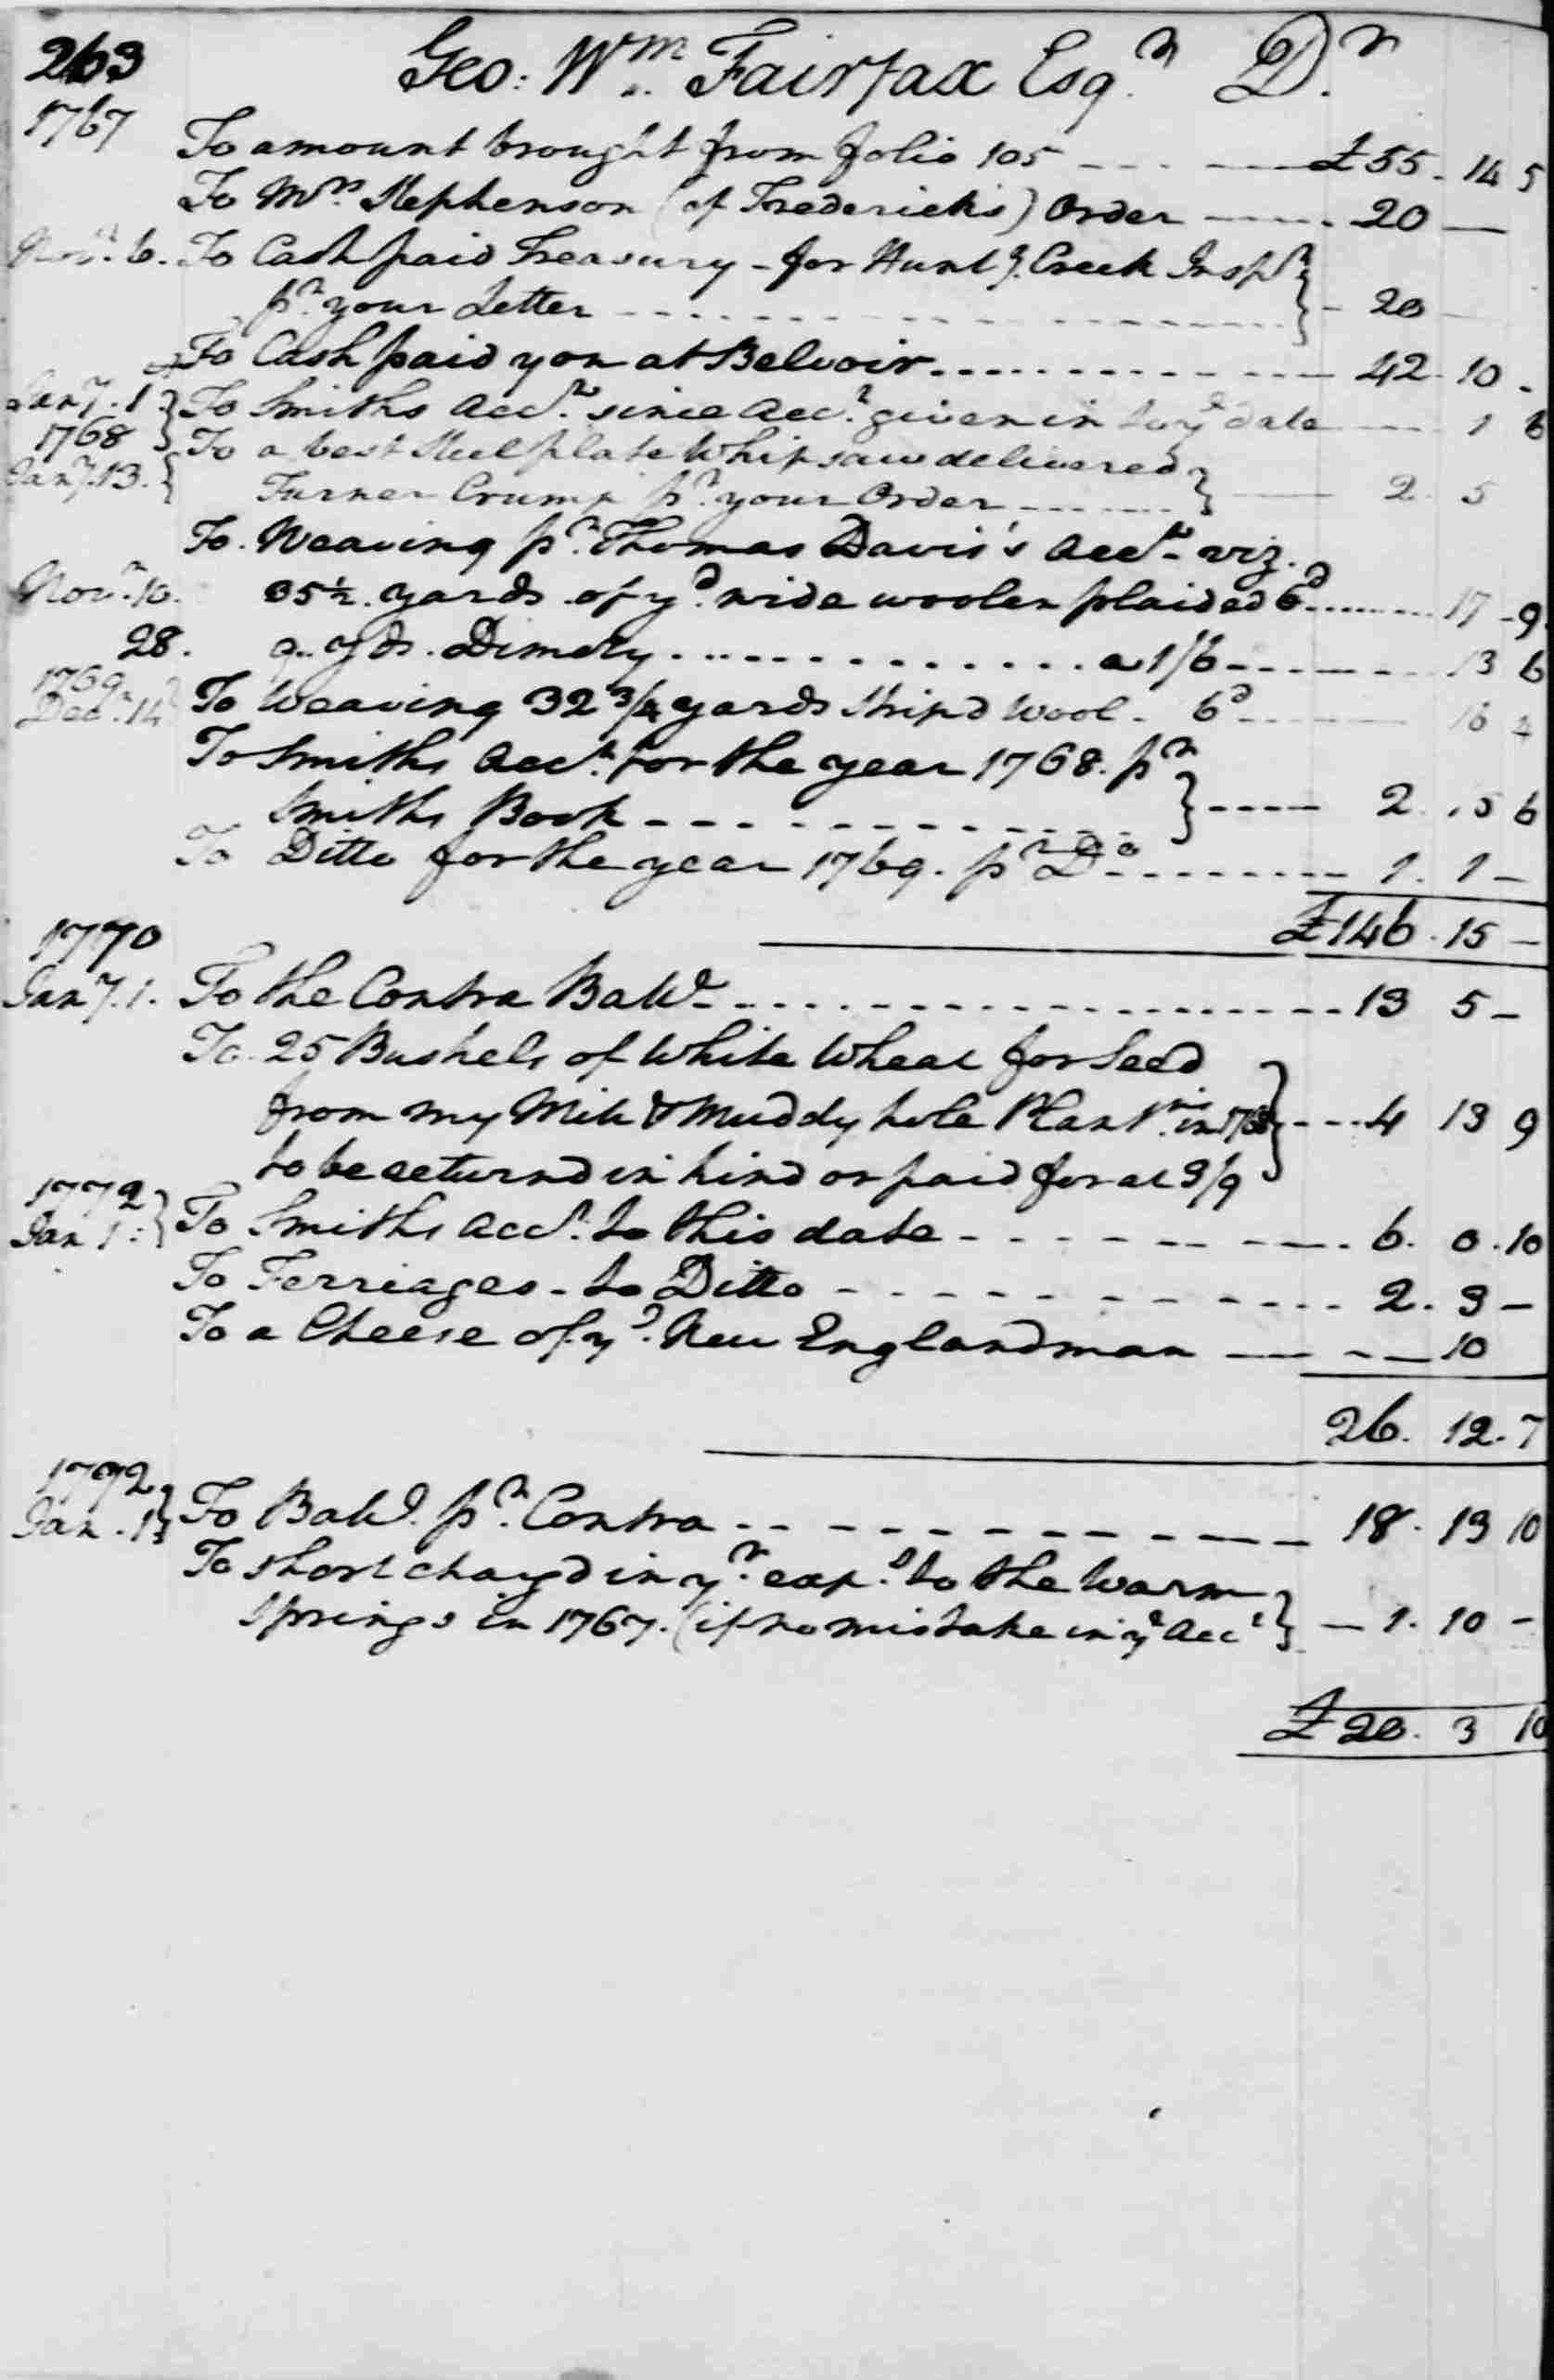 263 Geo: Wm. Fairfax Esqr. Dr.
1767 To amount brought from folio 105 - - - £55 - 14 5
To Mrs. Stephenson (of Fredericks) Order - - - 20 —
Novr. 6. To Cash paid Treasury - for Huntg. Creek Inspn
pr. your Letter - - - 20 —
To Cash paid you at Belvoir - - - 42 - 10 -
Jany. 1 To Smiths Acct. since Acct. given in to ye date - - - 1 6
1768 To a best Steel plate Whip saw delivered
Jany. 13. Turner Crump pr. your Order - - - 2. 5
To Weaving pr. Thomas Davis's Acct. viz.
Novr. 10. 35½ yards of yd. wide woolen plaided 6d - - - 17 - 9
28. 9. yds. Dimety - - - a 1/6 - - - 13 6
1769 To Weaving 32¾ yards Stripd Wool - 6d - - - 16 4
Decr. 14
To Smiths Acct. for the year 1768. pr
Smiths Book - - - 2. 15 6
To Ditto for the year 1769. pr Do - - - 1. 1 -
£146. 15 -
1770
Jany. 1. To the Contra Balle - - - 13 5 -
To 25 Bushels of White Wheat for Seed
from my Mill & Muddy hole Plantns in 1768 - - - 4 13 9
to be returnd in kind or paid for at 3/9
1772
Jan 1: To Smiths Acct. to this date - - - 6. 0. 10
To Ferriages - to Ditto - - - 2. 3 -
To a Cheese of ye. New Englandman - - - 10
26. 12. 7
1772
Jan. 1 To Balle. pr. Contra - - - 18. 13 10
To short chargd in yr. exps. to the Warm
Springs in 1767. (if no mistake in ye Acct - 1. 10 -
£20. 3 10